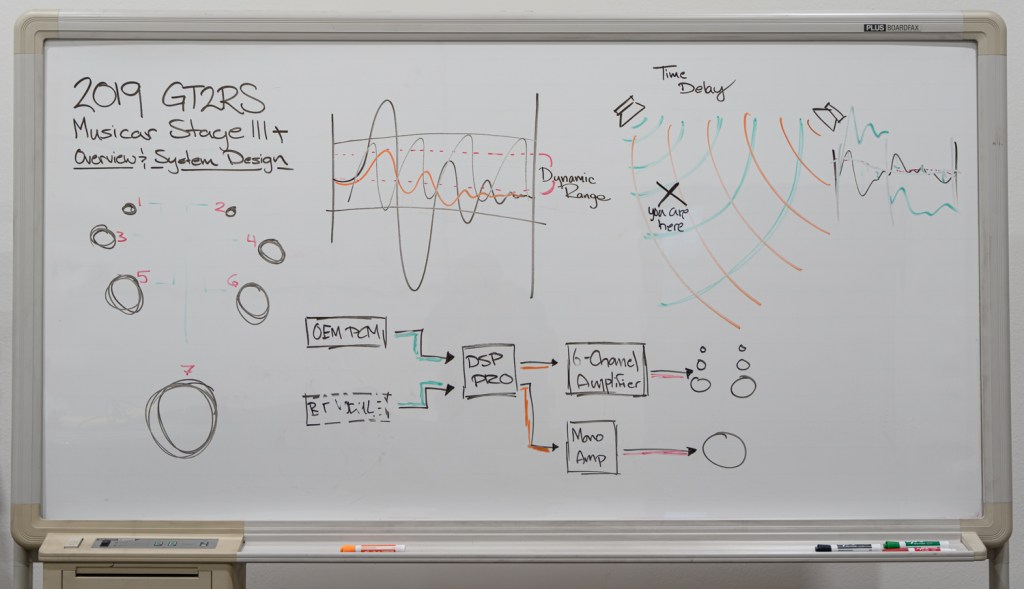 PLUS BOARDFAX
2019 GT2RS
Musicar Stage III+
Overview & System Design
1
2
3
4
5
6
7
Dynamic
Range
Time
Delay
you are
here
OEM PCM
DSP
PRO
6-Channel
Amplifier
Mono
Amp